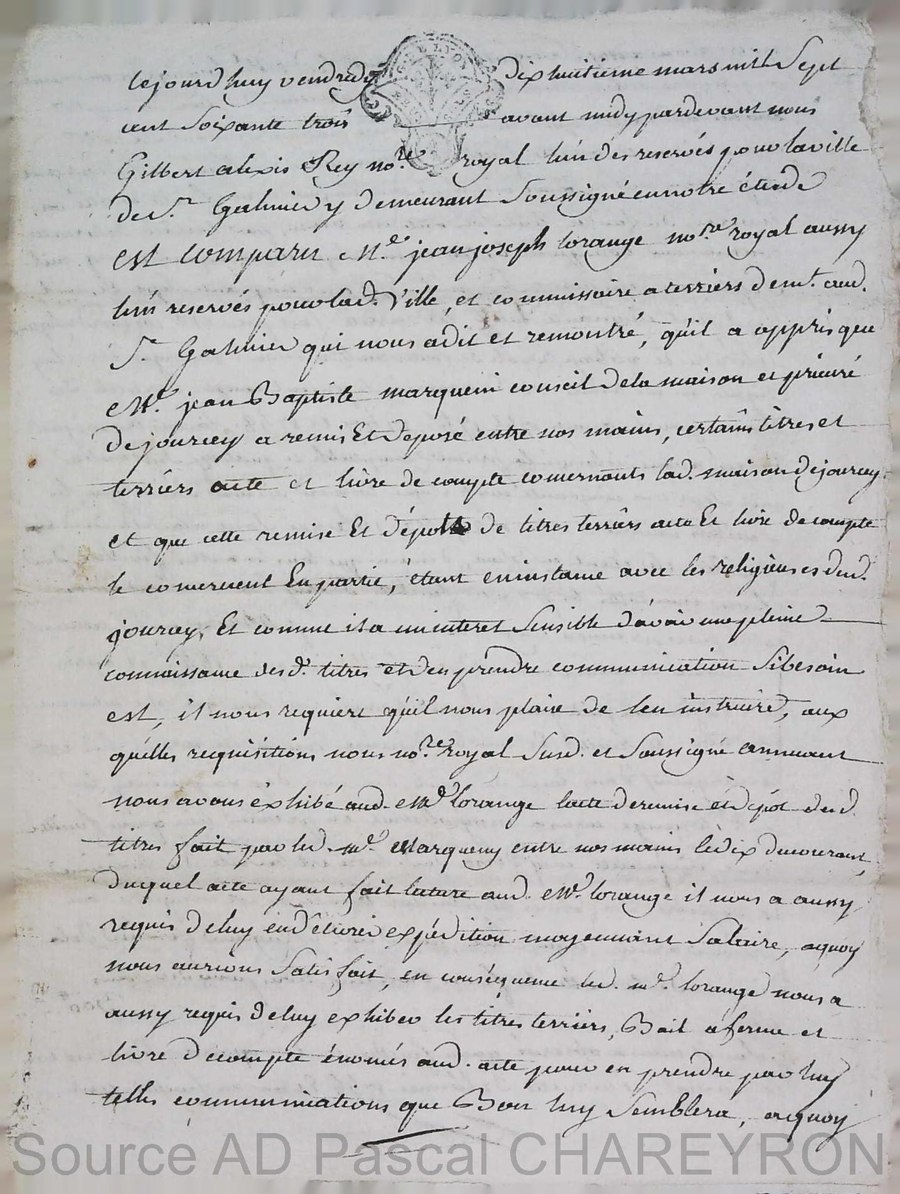 cejourd'huy vendredy dix huitieme mars mil sept
cent soixante trois avant midy pardevant nous
Gilbert alexis Rey no.re royal l'un des reservés pour la ville
de S.t Galmier y demeurant soussigné en notre étude
est comparu M.e jean joseph lorange no.re royal aussy
l'un reservés pour lad. Ville, et commissaire a terriers dem.t aud.
S.t Galmier qui nous a dit et remontré, qu'il a appris que
M.e jean Baptiste marquem conseil de la maison et prieuré
de jourcey a remis Et deposé entre nos mains, certains titres et
terriers acte et livre de compte concernants lad. maison de jourcey
et que cette remise Et dépost de titres terriers acte Et livre de compte
le concernent En partie, étant en instance avec les religieuses dud.
jourcey, Et comme il a un interet sensible d'avoir une pleine
connaissance desd. titres et d'en prendre communication si besoin
est, il nous requiert qu'il nous plaise de l'en instruire, aux
quelles requisitions nous no.re royal susd. et soussigné annuant
nous avons éxhibé aud. M.e lorange l'acte de remise et dépot desd.
titres fait par led. m.e Marquem entre nos mains le dix du courant,
duquel acte ayant fait lecture aud. M.e lorange il nous a aussy
requis de luy en délivrer expédition moyennant salaire, aquoy
nous aurions satisfait, en conséquence led. m.e lorange nous a
aussy requis de luy exhiber les titres terriers, Bail a ferme et
livre de compte énoncés aud. acte pour en prendre par luy
telles communications que Bon luy semblera, aquoy
Source AD Pascal CHAREYRON